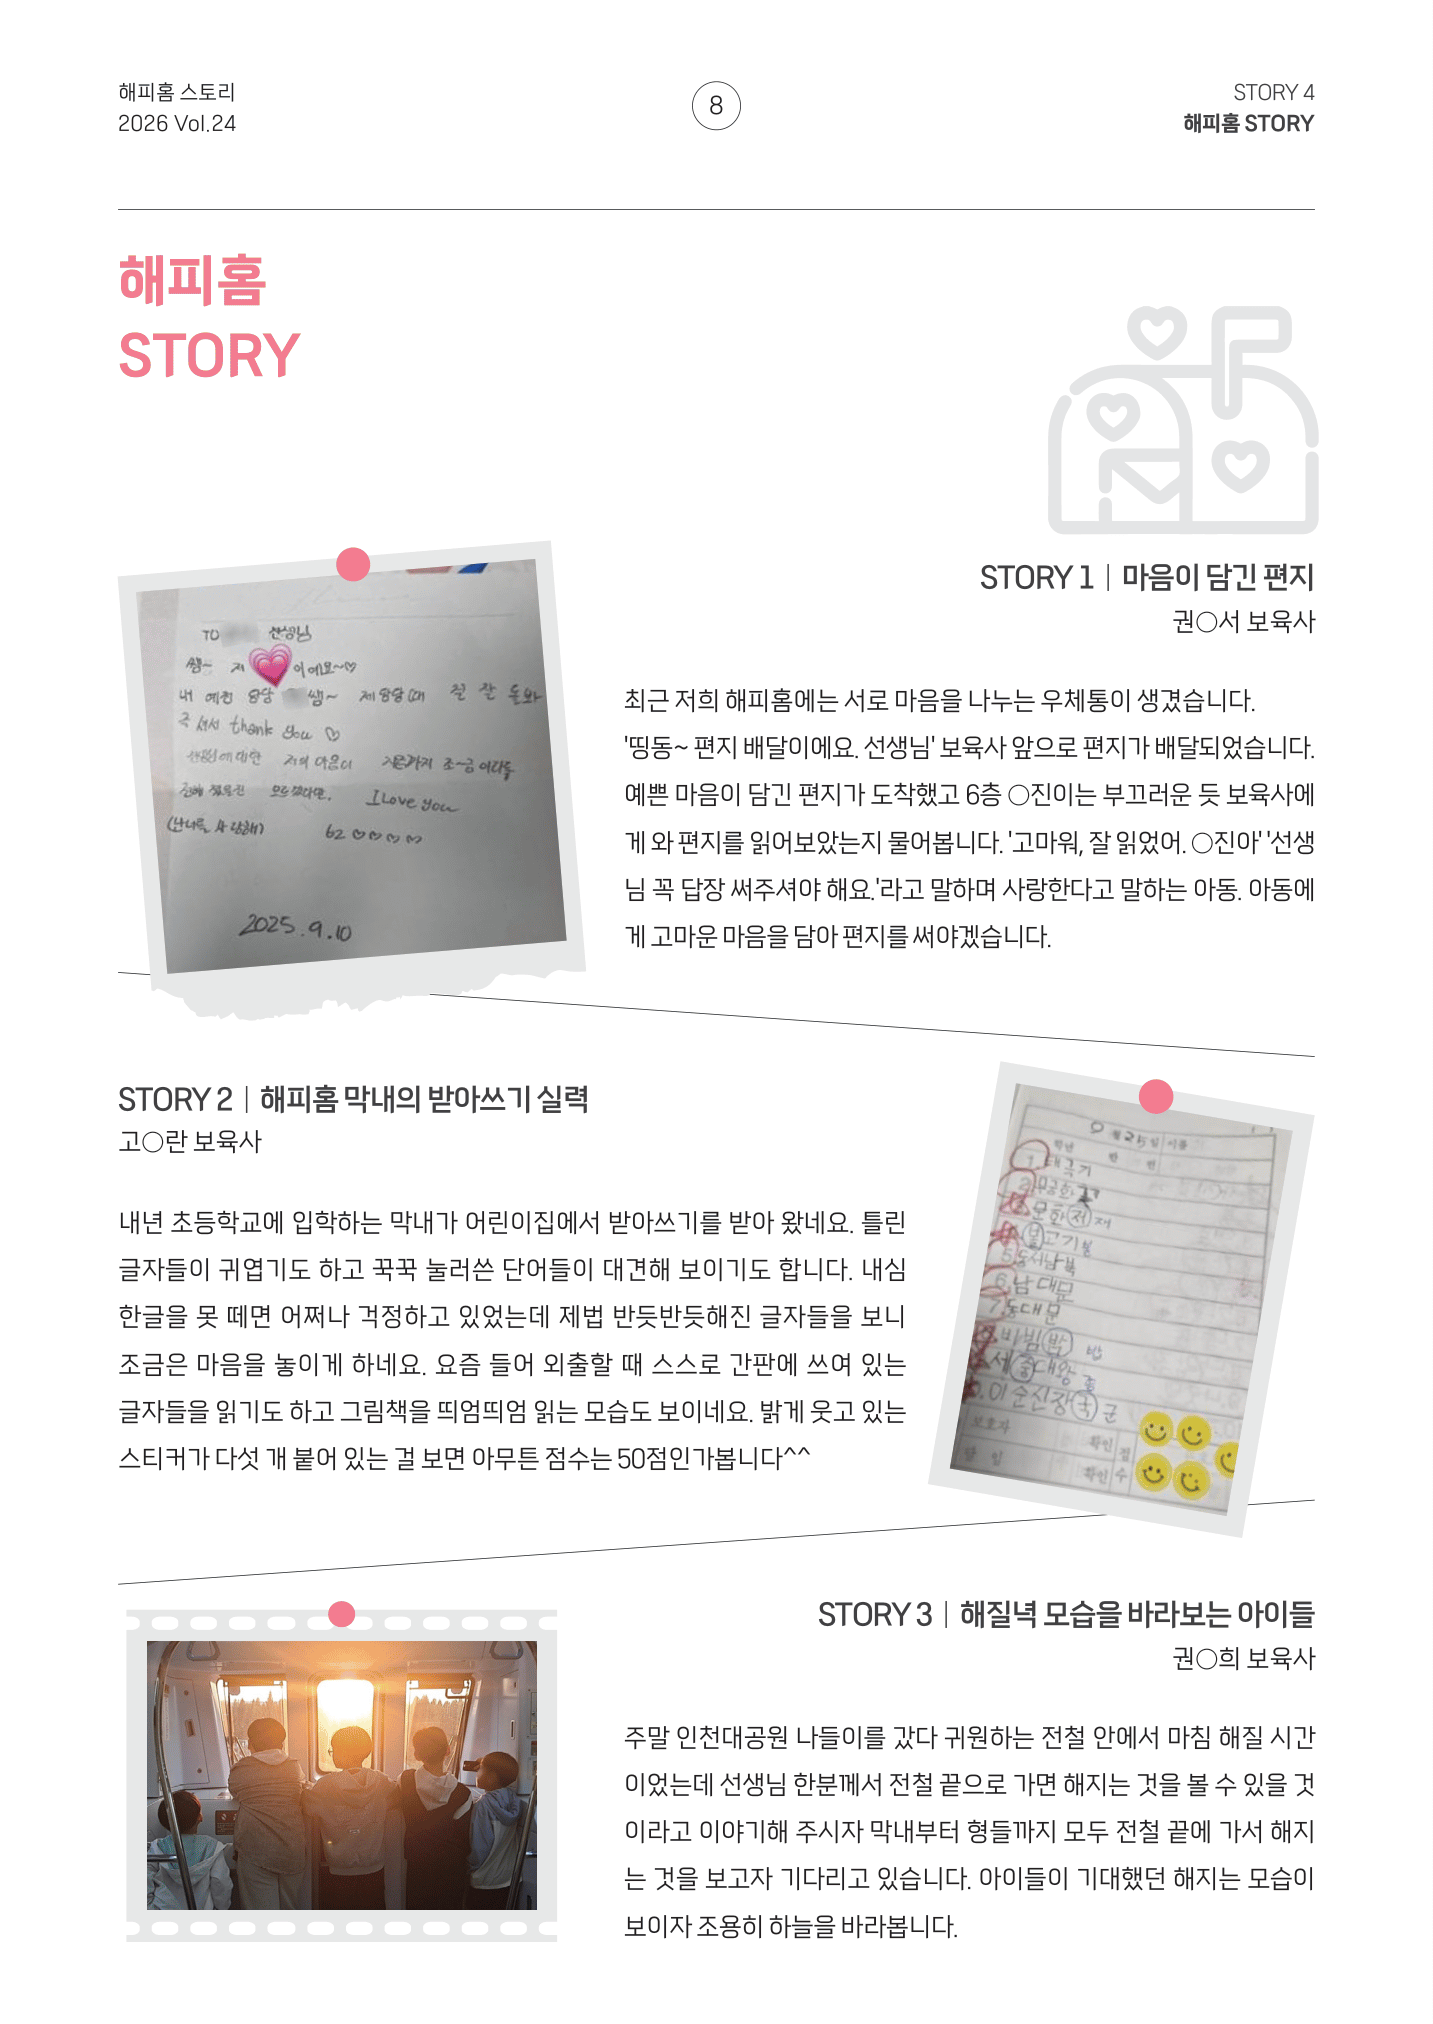 해피홈 스토리
2026 Vol.24
8
STORY 4
해피홈 STORY
해피홈
STORY
TO 선생님
쌤~ 저 이예요~♡
내 예전 담당 쌤~ 제 담당 때 절 잘 돌봐
주셔서 thank you ♡
I Love you
2025.9.10
STORY 1 | 마음이 담긴 편지
권○서 보육사
최근 저희 해피홈에는 서로 마음을 나누는 우체통이 생겼습니다.
'띵동~ 편지 배달이에요. 선생님' 보육사 앞으로 편지가 배달되었습니다.
예쁜 마음이 담긴 편지가 도착했고 6층 ○진이는 부끄러운 듯 보육사에
게 와 편지를 읽어보았는지 물어봅니다. '고마워, 잘 읽었어. ○진아' '선생
님 꼭 답장 써주셔야 해요.'라고 말하며 사랑한다고 말하는 아동. 아동에
게 고마운 마음을 담아 편지를 써야겠습니다.
STORY 2 | 해피홈 막내의 받아쓰기 실력
고○란 보육사
내년 초등학교에 입학하는 막내가 어린이집에서 받아쓰기를 받아 왔네요. 틀린
글자들이 귀엽기도 하고 꾹꾹 눌러쓴 단어들이 대견해 보이기도 합니다. 내심
한글을 못 떼면 어쩌나 걱정하고 있었는데 제법 반듯반듯해진 글자들을 보니
조금은 마음을 놓이게 하네요. 요즘 들어 외출할 때 스스로 간판에 쓰여 있는
글자들을 읽기도 하고 그림책을 띄엄띄엄 읽는 모습도 보이네요. 밝게 웃고 있는
스티커가 다섯 개 붙어 있는 걸 보면 아무튼 점수는 50점인가봅니다^^
월 25일 이름
학년 반 번
1. 태극기
2. 무궁화 꽃
문화저 재
물고기 불
5. 동서남북
6. 남대문
7. 동대문
비빔밥 밥
세종대왕 종
10. 이순신장국 군
보호자 확인 점
담임 확인 수
STORY 3 | 해질녘 모습을 바라보는 아이들
권○희 보육사
주말 인천대공원 나들이를 갔다 귀원하는 전철 안에서 마침 해질 시간
이었는데 선생님 한분께서 전철 끝으로 가면 해지는 것을 볼 수 있을 것
이라고 이야기해 주시자 막내부터 형들까지 모두 전철 끝에 가서 해지
는 것을 보고자 기다리고 있습니다. 아이들이 기대했던 해지는 모습이
보이자 조용히 하늘을 바라봅니다.